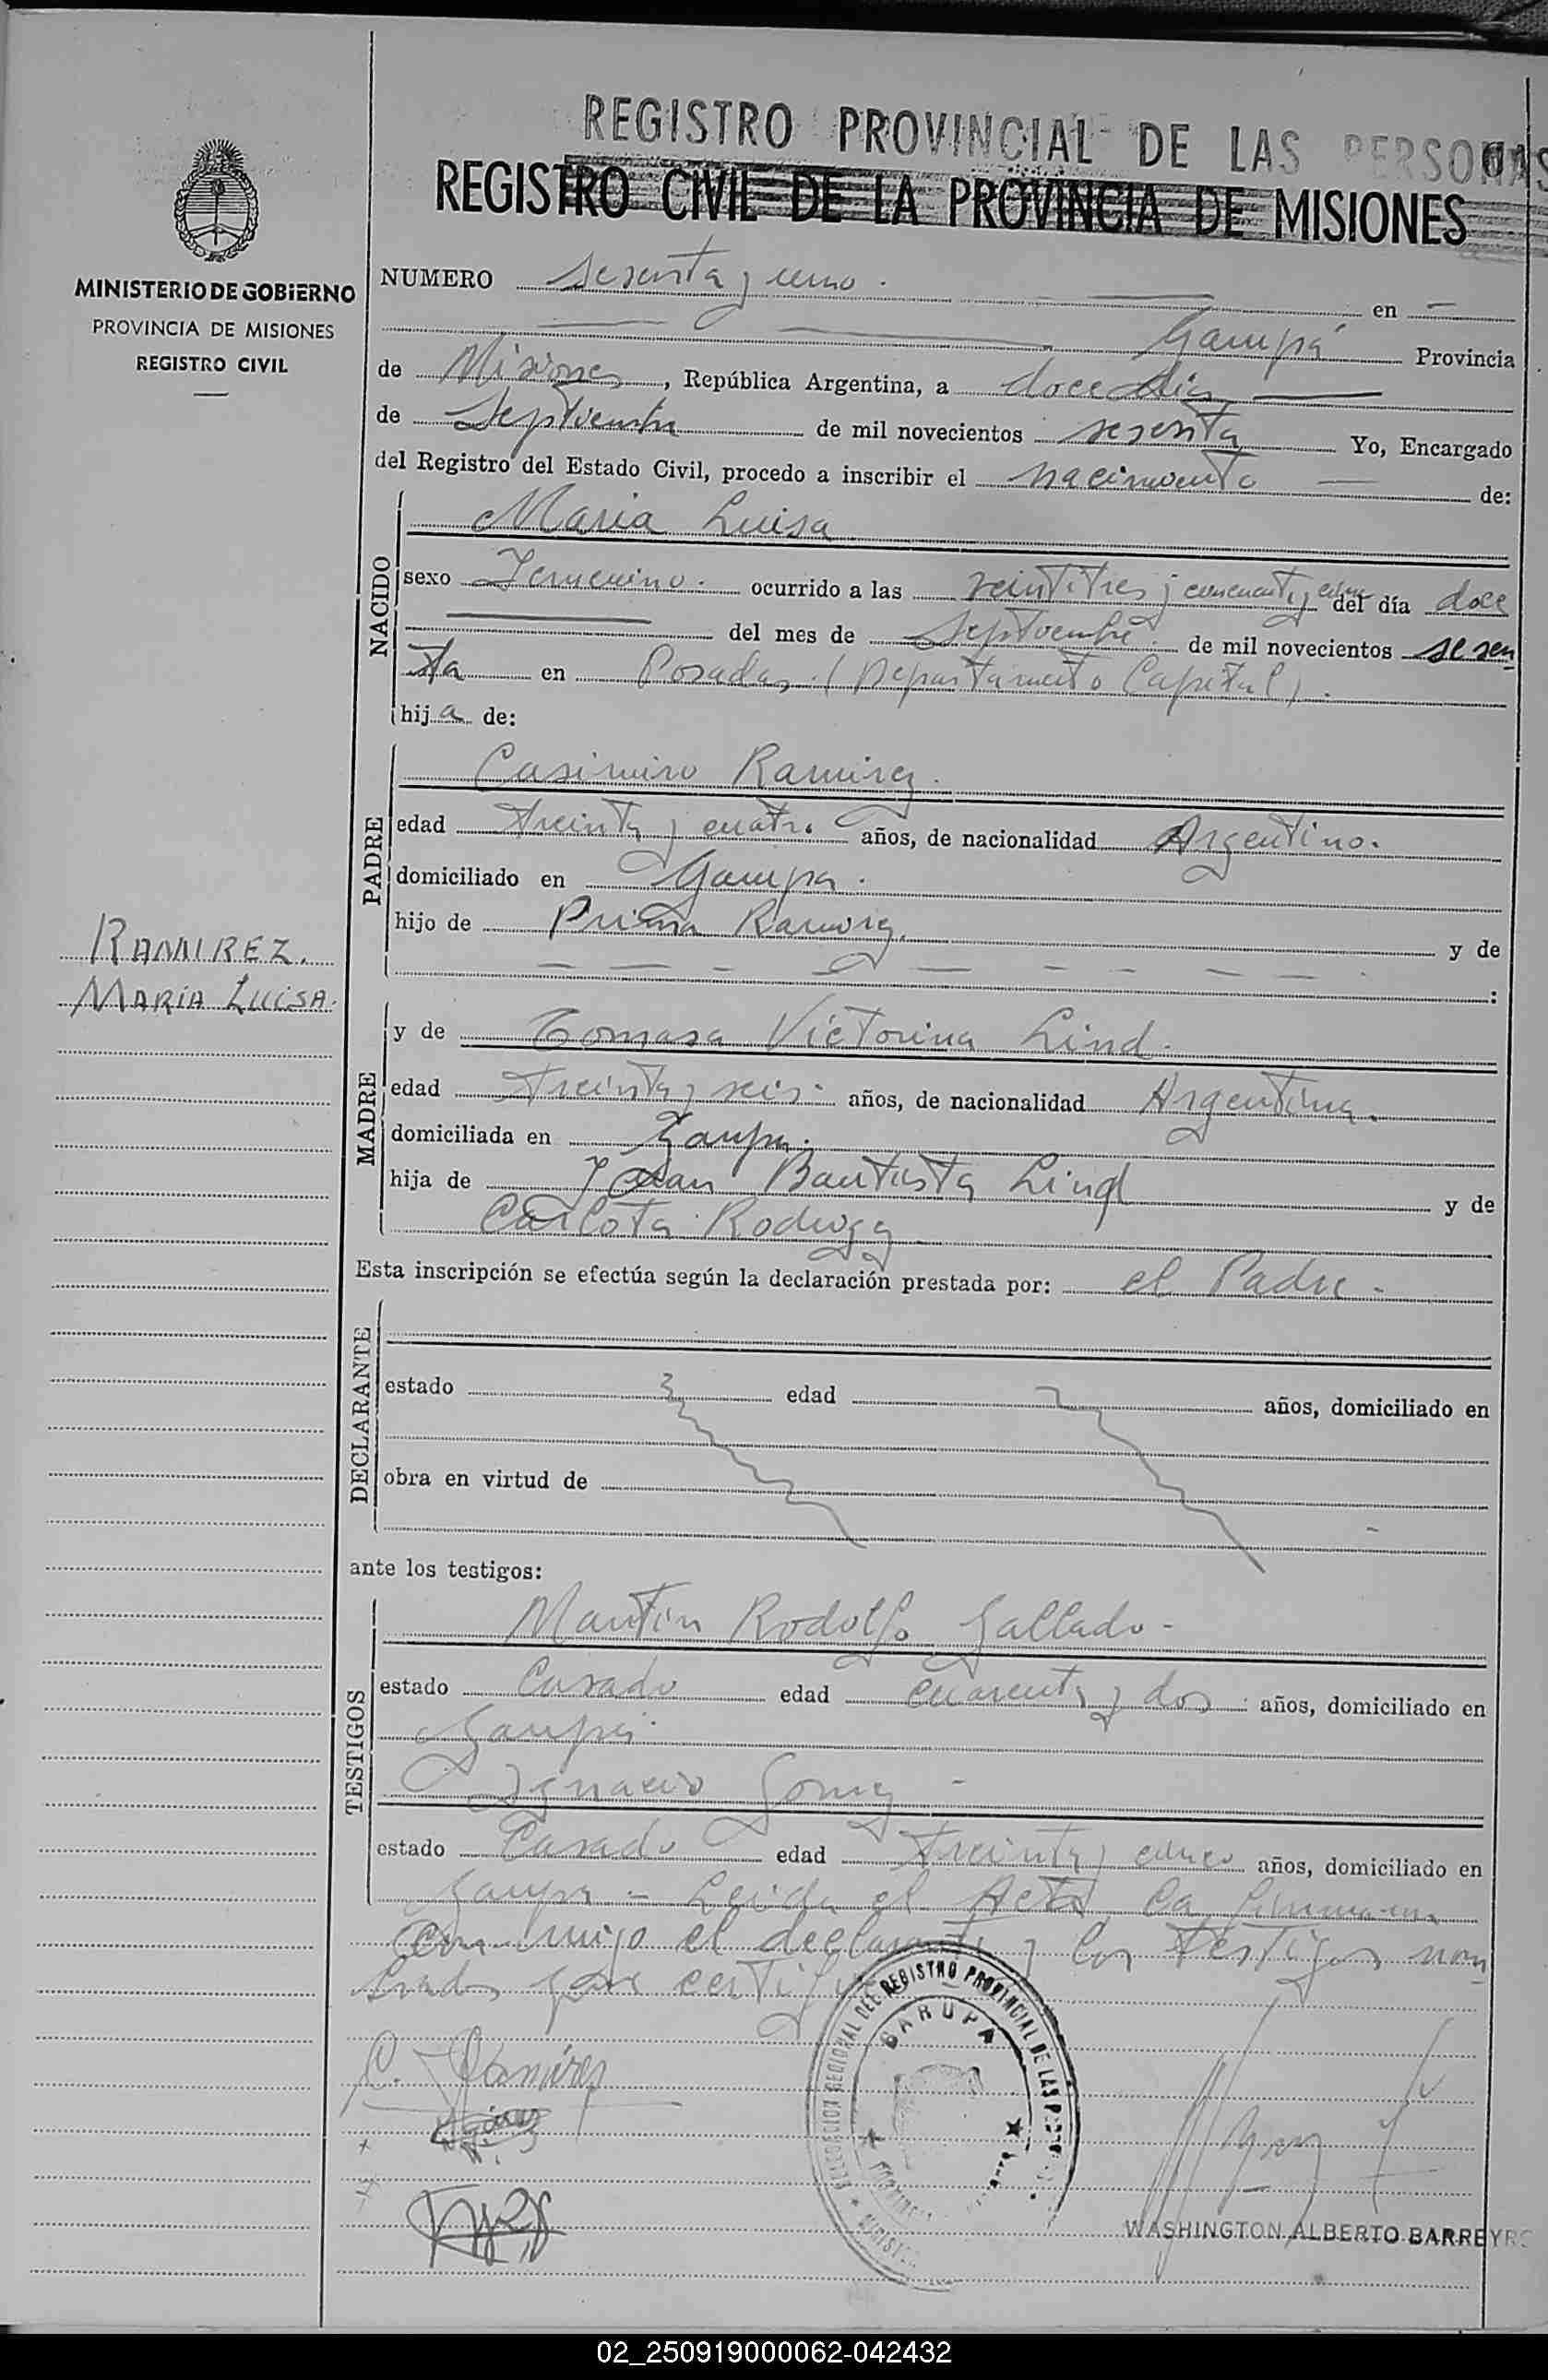 REGISTRO PROVINCIAL DE LAS PERSONAS
REGISTRO CIVIL DE LA PROVINCIA DE MISIONES
MINISTERIO DE GOBIERNO
PROVINCIA DE MISIONES
REGISTRO CIVIL
NUMERO sesenta y uno. en
Garupá Provincia
de Misiones, República Argentina, a doce días
de Septiembre de mil novecientos sesenta Yo, Encargado
del Registro del Estado Civil, procedo a inscribir el nacimiento de:
NACIDO
Maria Luisa
sexo Femenino. ocurrido a las veintitres y cincuenta y del día doce
del mes de Septiembre. de mil novecientos sesen
ta en Posadas (Departamento Capital).
hija de:
PADRE
Casimiro Ramirez.
edad treinta y cuatro años, de nacionalidad Argentino.
domiciliado en Garupa.
hijo de Ramirez. y de
RAMIREZ.
MARIA LUISA.
MADRE
y de Tomasa Victorina Lind.
edad treinta y seis. años, de nacionalidad Argentina.
domiciliada en Garupa.
hija de Juan Bautista Lind y de
Carlota Rodrigz
Esta inscripción se efectúa según la declaración prestada por: el Padre.
DECLARANTE
estado edad años, domiciliado en
obra en virtud de
ante los testigos:
TESTIGOS
Martin Rodolfo Gallado
estado Casado edad cuarenta y dos años, domiciliado en
Garupa.
Ignacio Gomez
estado Casado edad treinta y cinco años, domiciliado en
Garupa - Leida el Acta, la firmaron
conmigo el declarante y los testigos nom
brados que certifico
C. Ramírez
DEL REGISTRO PROVINCIAL DE LAS
GARUPA
WASHINGTON ALBERTO BARREYRO
02_250919000062-042432